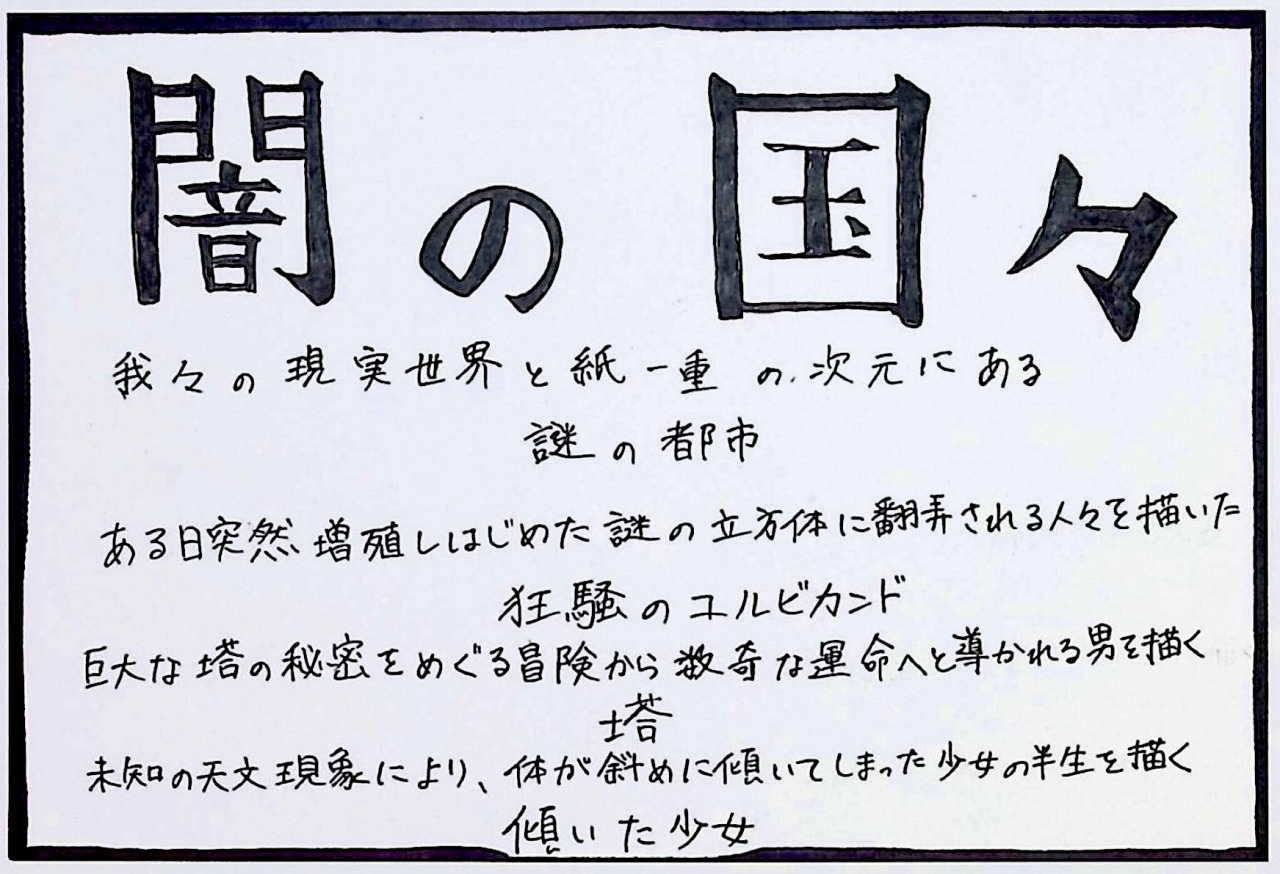 闇の国々
我々の現実世界と紙一重の次元にある
謎の都市
ある日突然増殖しはじめた謎の立方体に翻弄される人々を描いた
狂騒のユルビカンド
巨大な塔の秘密をめぐる冒険から数奇な運命へと導かれる男を描く
塔
未知の天文現象により、体が斜めに傾いてしまった少女の半生を描く
傾いた少女